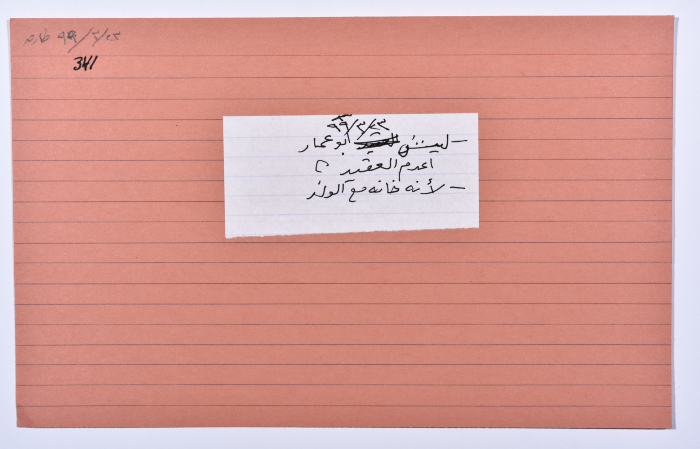 ٩٩/٣/٢٣
341
٩٩/٣/٢٣
– ليش أبو عمار
اعدم العقيد ؟
– لأنه خانه مع الولد